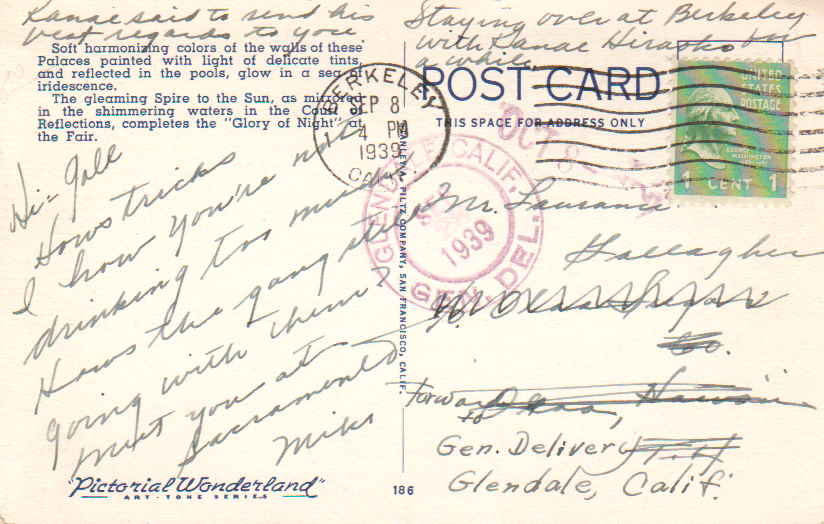 Kanae said to send his
best regards to you.
Soft harmonizing colors of the walls of these
Palaces painted with light of delicate tints,
and reflected in the pools, glow in a sea of
iridescence.
The gleaming Spire to the Sun, as mirrored
in the shimmering waters in the Court of
Reflections, completes the "Glory of Night" at
the Fair.
Hi- Gall
Hows tricks
I how you're not
drinking too much
Hows the gang
going with them?
meet you at
Sacramento
Mike
"Pictorial Wonderland"
ART-TONE SERIES
Staying over at Berkeley
with Kanae for
a while
POST CARD
THIS SPACE FOR ADDRESS ONLY
BERKELEY
SEP 8
4 PM
1939
CALIF.
UNITED
STATES
POSTAGE
GEORGE
WASHINGTON
1 CENT 1
OCT
GLENDALE, CALIF.
1939
GEN. DEL.
STANLEY A. PILTZ COMPANY, SAN FRANCISCO, CALIF.
Mr. Laurance
Gallagher
% Oahu Sugar
Co.
Forward
to
Hawaii
T.H.
Gen. Delivery
Glendale, Calif.
186